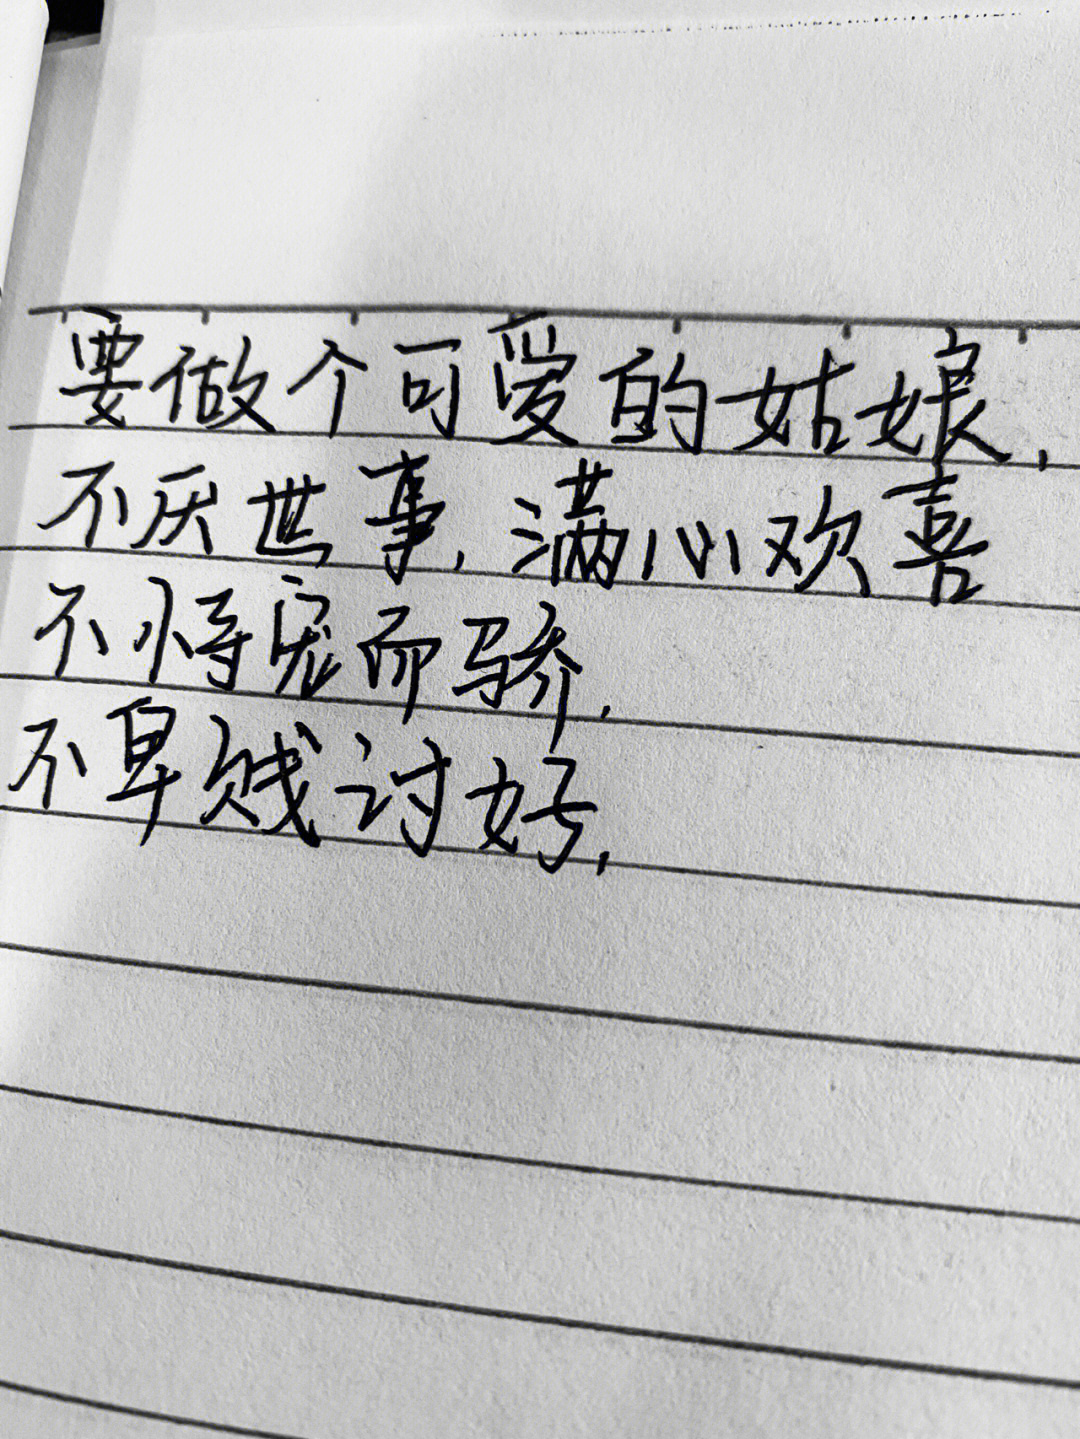 要做个可爱的姑娘，
不厌世事，满心欢喜
不恃宠而骄，
不卑贱讨好，